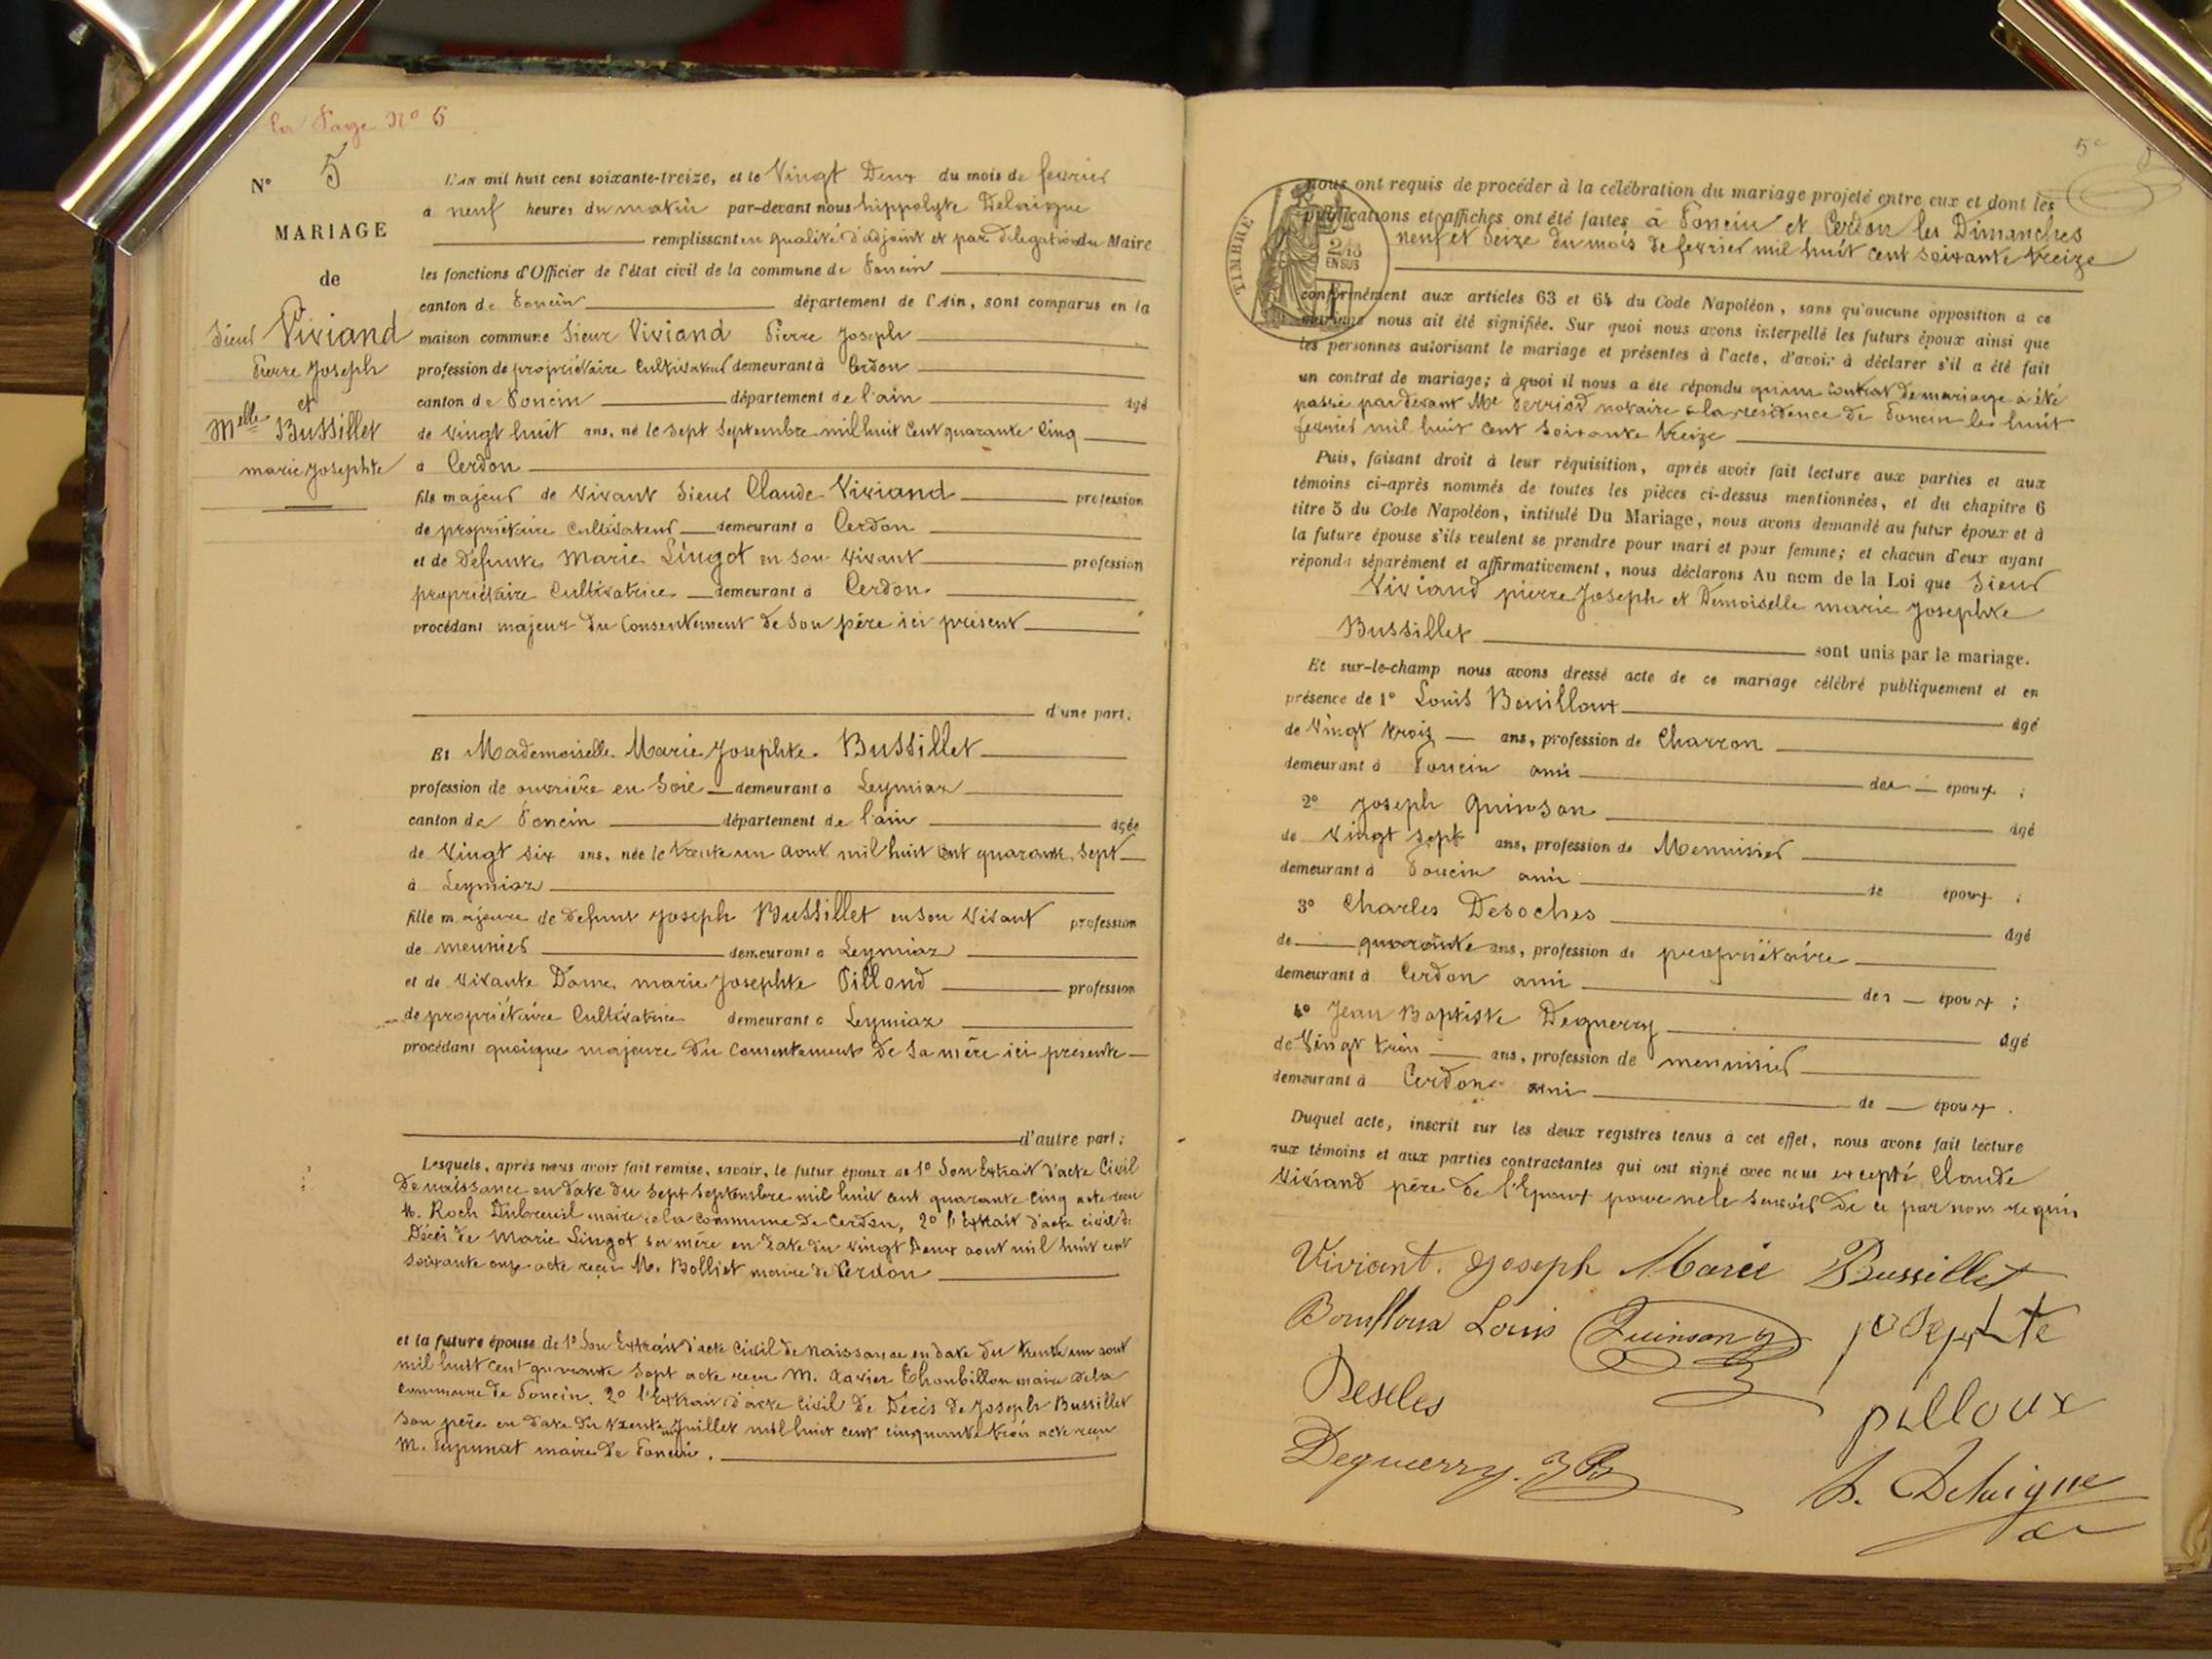 la Page N° 6
N° 5
MARIAGE
de
Sieur Viviand
Pierre Joseph
et
Melle Bussillet
marie Josephte
L'an mil huit cent soixante-treize, et le Vingt Deux du mois de fevrier
à neuf heures du matin par-devant nous hippolyte Delaigue
remplissant en qualité d'adjoint et par délégation du Maire
les fonctions d'Officier de l'état civil de la commune de Poncin
canton de Poncin département de l'Ain, sont comparus en la
maison commune Sieur Viviand Pierre Joseph
profession de propriétaire Cultivateur demeurant à Cerdon
canton de Poncin département de l'ain âgé
de Vingt huit ans, né le sept Septembre mil huit Cent quarante Cinq
à Cerdon
fils majeur de Vivant Sieur Claude Viviand profession
de propriétaire Cultivateur demeurant à Cerdon
et de Défunte Marie Lingot en son Vivant profession
propriétaire Cultivatrice demeurant à Cerdon
procédant majeur du Consentement de son père ici présent
d'une part;
Et Mademoiselle Marie Josephte Bussillet
profession de ouvrière en Soie demeurant à Leymiaz
canton de Poncin département de l'ain âgée
de Vingt Six ans, née le trente un Aout mil huit Cent quarante Sept
à Leymiaz
fille majeure de Defunt Joseph Bussillet en son Vivant profession
de meunier demeurant à Leymiaz
et de Vivante Dame marie Josephte Pilloud profession
de propriétaire Cultivatrice demeurant à Leymiaz
procédant quoique majeure du Consentement de sa mère ici présente
d'autre part;
Lesquels, après nous avoir fait remise, savoir, le futur époux de 1° Son Extrait d'acte Civil
De naissance en date du Sept Septembre mil huit cent quarante Cinq acte reçu
M. Roch Dubreuil maire de la Commune de Cerdon, 2° l'Extrait d'acte civil de
Décès de Marie Lingot sa mère en date du vingt Deux aout mil huit cent
soixante onze acte reçu M. Bolliet maire de Cerdon
et la future épouse de 1° Son Extrait d'acte Civil de Naissance en date du trente un aout
mil huit Cent quarante Sept acte reçu M. Xavier Thoubillon maire de la
Commune de Poncin. 2° l'Extrait d'acte Civil de Décès de Joseph Bussillet
Son père en date du trente un Juillet mil huit cent cinquante trois acte reçu
M. maire de Poncin.
5e
nous ont requis de procéder à la célébration du mariage projeté entre eux et dont les
publications et affiches ont été faites à Poncin et Cerdon les Dimanches
neuf et Seize du mois de fevrier mil huit cent soixante treize
TIMBRE
2/10
EN SUS
conformément aux articles 63 et 64 du Code Napoléon, sans qu'aucune opposition à ce
mariage nous ait été signifiée. Sur quoi nous avons interpellé les futurs époux ainsi que
les personnes autorisant le mariage et présentes à l'acte, d'avoir à déclarer s'il a été fait
un contrat de mariage; à quoi il nous a été répondu qu'un Contrat de mariage a été
passé par devant Me notaire à la residence de Poncin le huit
fevrier mil huit cent Soixante treize
Puis, faisant droit à leur réquisition, après avoir fait lecture aux parties et aux
témoins ci-après nommés de toutes les pièces ci-dessus mentionnées, et du chapitre 6
titre 5 du Code Napoléon, intitulé Du Mariage, nous avons demandé au futur époux et à
la future épouse s'ils veulent se prendre pour mari et pour femme; et chacun d'eux ayant
répondu séparément et affirmativement, nous déclarons Au nom de la Loi que Sieur
Viviand pierre Joseph et Demoiselle marie Josephte
Bussillet sont unis par le mariage.
Et sur-le-champ nous avons dressé acte de ce mariage célébré publiquement et en
présence de 1° Louis Bouilloux âgé
de Vingt trois ans, profession de Charron
demeurant à Poncin ami des époux ;
2° Joseph Quinson âgé
de Vingt Sept ans, profession de Menuisier
demeurant à Poncin ami de époux ;
3° Charles Desoches âgé
de quarante ans, profession de propriétaire
demeurant à Cerdon ami des époux ;
4° Jean Baptiste Deguerry âgé
de Vingt trois ans, profession de menuisier
demeurant à Cerdon ami de époux .
Duquel acte, inscrit sur les deux registres tenus à cet effet, nous avons fait lecture
aux témoins et aux parties contractantes qui ont signé avec nous excepté Claude
Viviand père de l'Epoux pour ne le Savoir de ce par nous requis
Viviant. Joseph Marie Bussillet
Bouilloux Louis Quinson J Josephte
Deseles pilloux
Deguerry. J B H. Delaigue